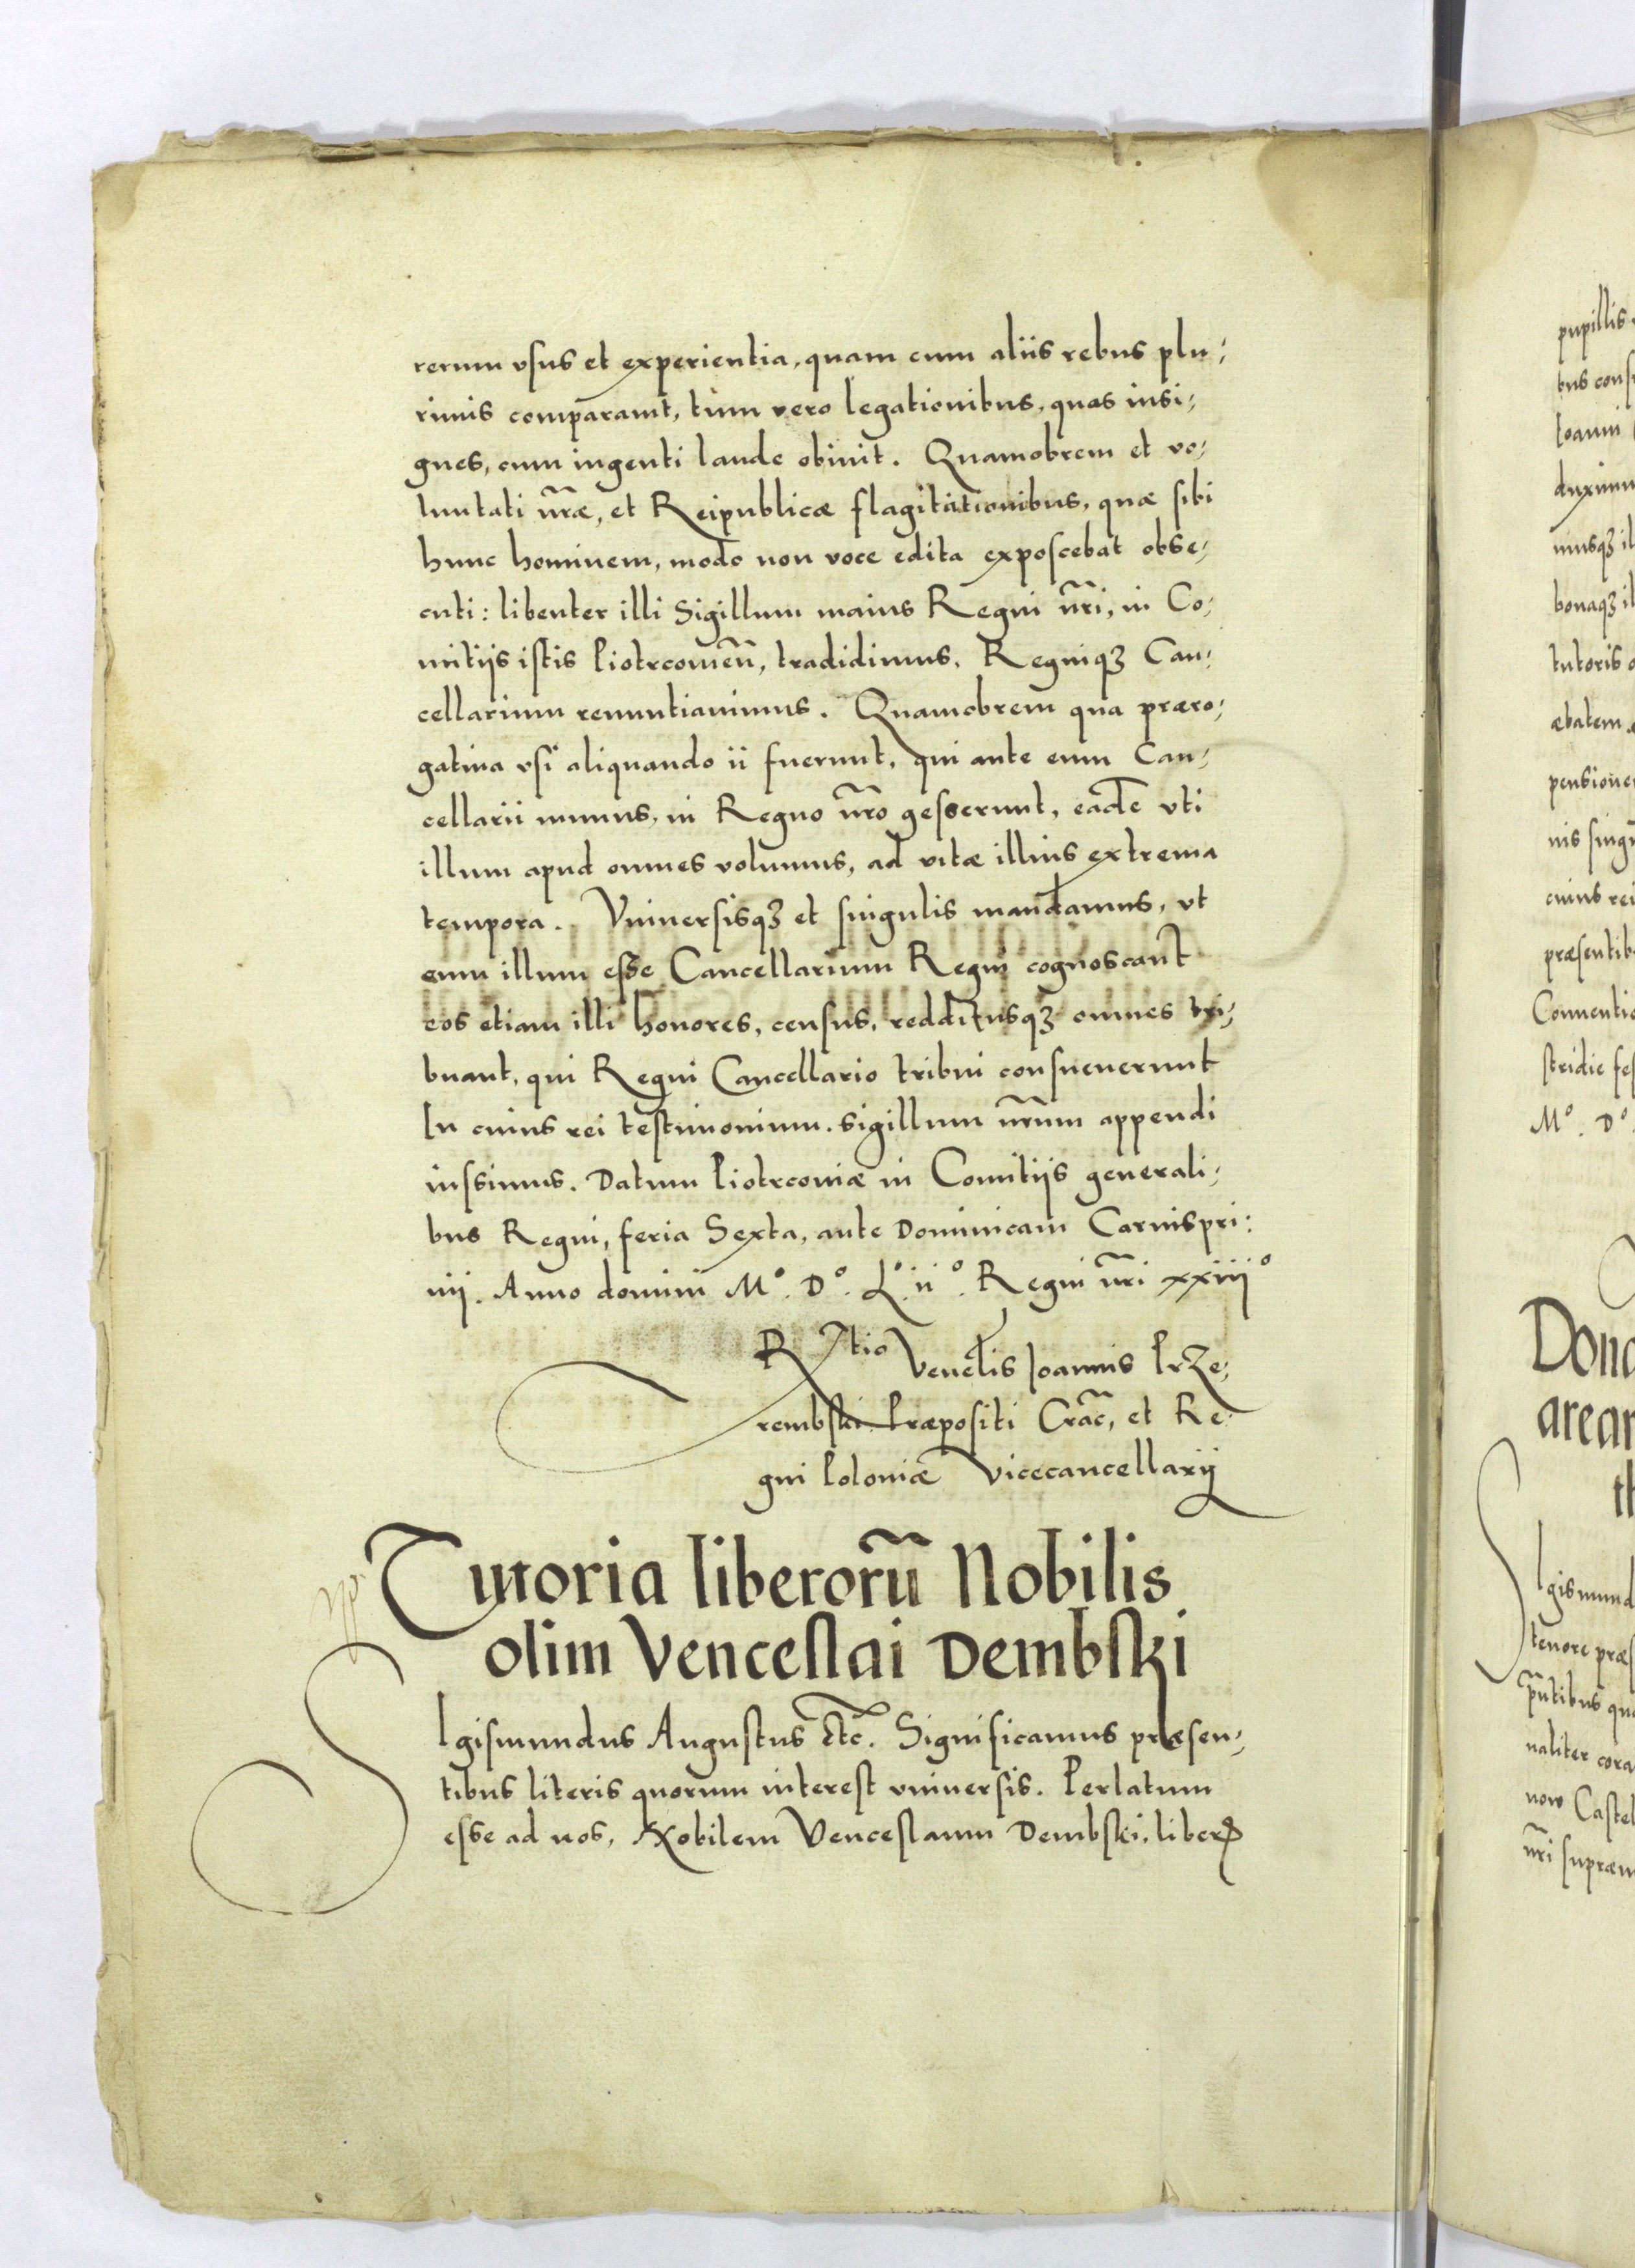 rerum vsus et experientia, quam cum aliis rebus plu;
rimis comparauit, tum vero legationibus, quas insi;
gnes, cum ingenti laude obiuit. Quamobrem et vo;
luntati nr̃æ, et Reipublicæ flagitationibus, quæ sibi
hunc hominem, modo non voce edita exposcebat obse;
cuti: libenter illi Sigillum maius Regni nr̃i, in Co;
mitijs istis Piotrcouieñ, tradidimus, Regniqʒ Can;
cellarium renuntiauimus. Quamobrem qua præro;
gatiua vsi aliquando ii fuerunt, qui ante eum Can;
cellarii munus, in Regno nr̃o gesserunt, eadẽ vti
illum apud omnes volumus, ad vitæ illius extrema
tempora. Vniuersisqʒ et singulis mandamus, vt
cum illum esse Cancellarium Regni cognoscant
eos etiam illi honores, census, redditusqʒ omnes tri;
buant, qui Regni Cancellario tribui consueuerunt
In cuius rei testimonium. sigillum nr̃um appendi
iussimus. Datum Piotrcouiæ in Comitijs generali;
bus Regni, feria Sexta, ante Dominicam Carnispri:
uij. Anno domini Mº. Dº. Lº. iiº. Regni nr̃i xxiiijº
Rtio Venelis Ioannis Prze;
rembski Præpositi Crac̃, et Re
gni Poloniæ Vicecancellarij
Tutoria liberorũ Nobilis
olim Venceslai Dembski
SIgismundus Augustus Etc̃. Significamus præsen;
tibus literis quorum interest vniuersis. Perlatum
esse ad nos, Nobilem Venceslaum Dembski, liberoꝝ
pupillis
bus cons
Ioanni
duximu
musqʒ il
bonaqʒ il
tutoris
æbatem
pensione
nis sing
cuius rei
præsentib
Conuentio
stridie fes
Mº. Dº.
Dona
arear
th
SIgismund
tenore præs
pñtibus qu
naliter cora
now Castel
nr̃i supræm